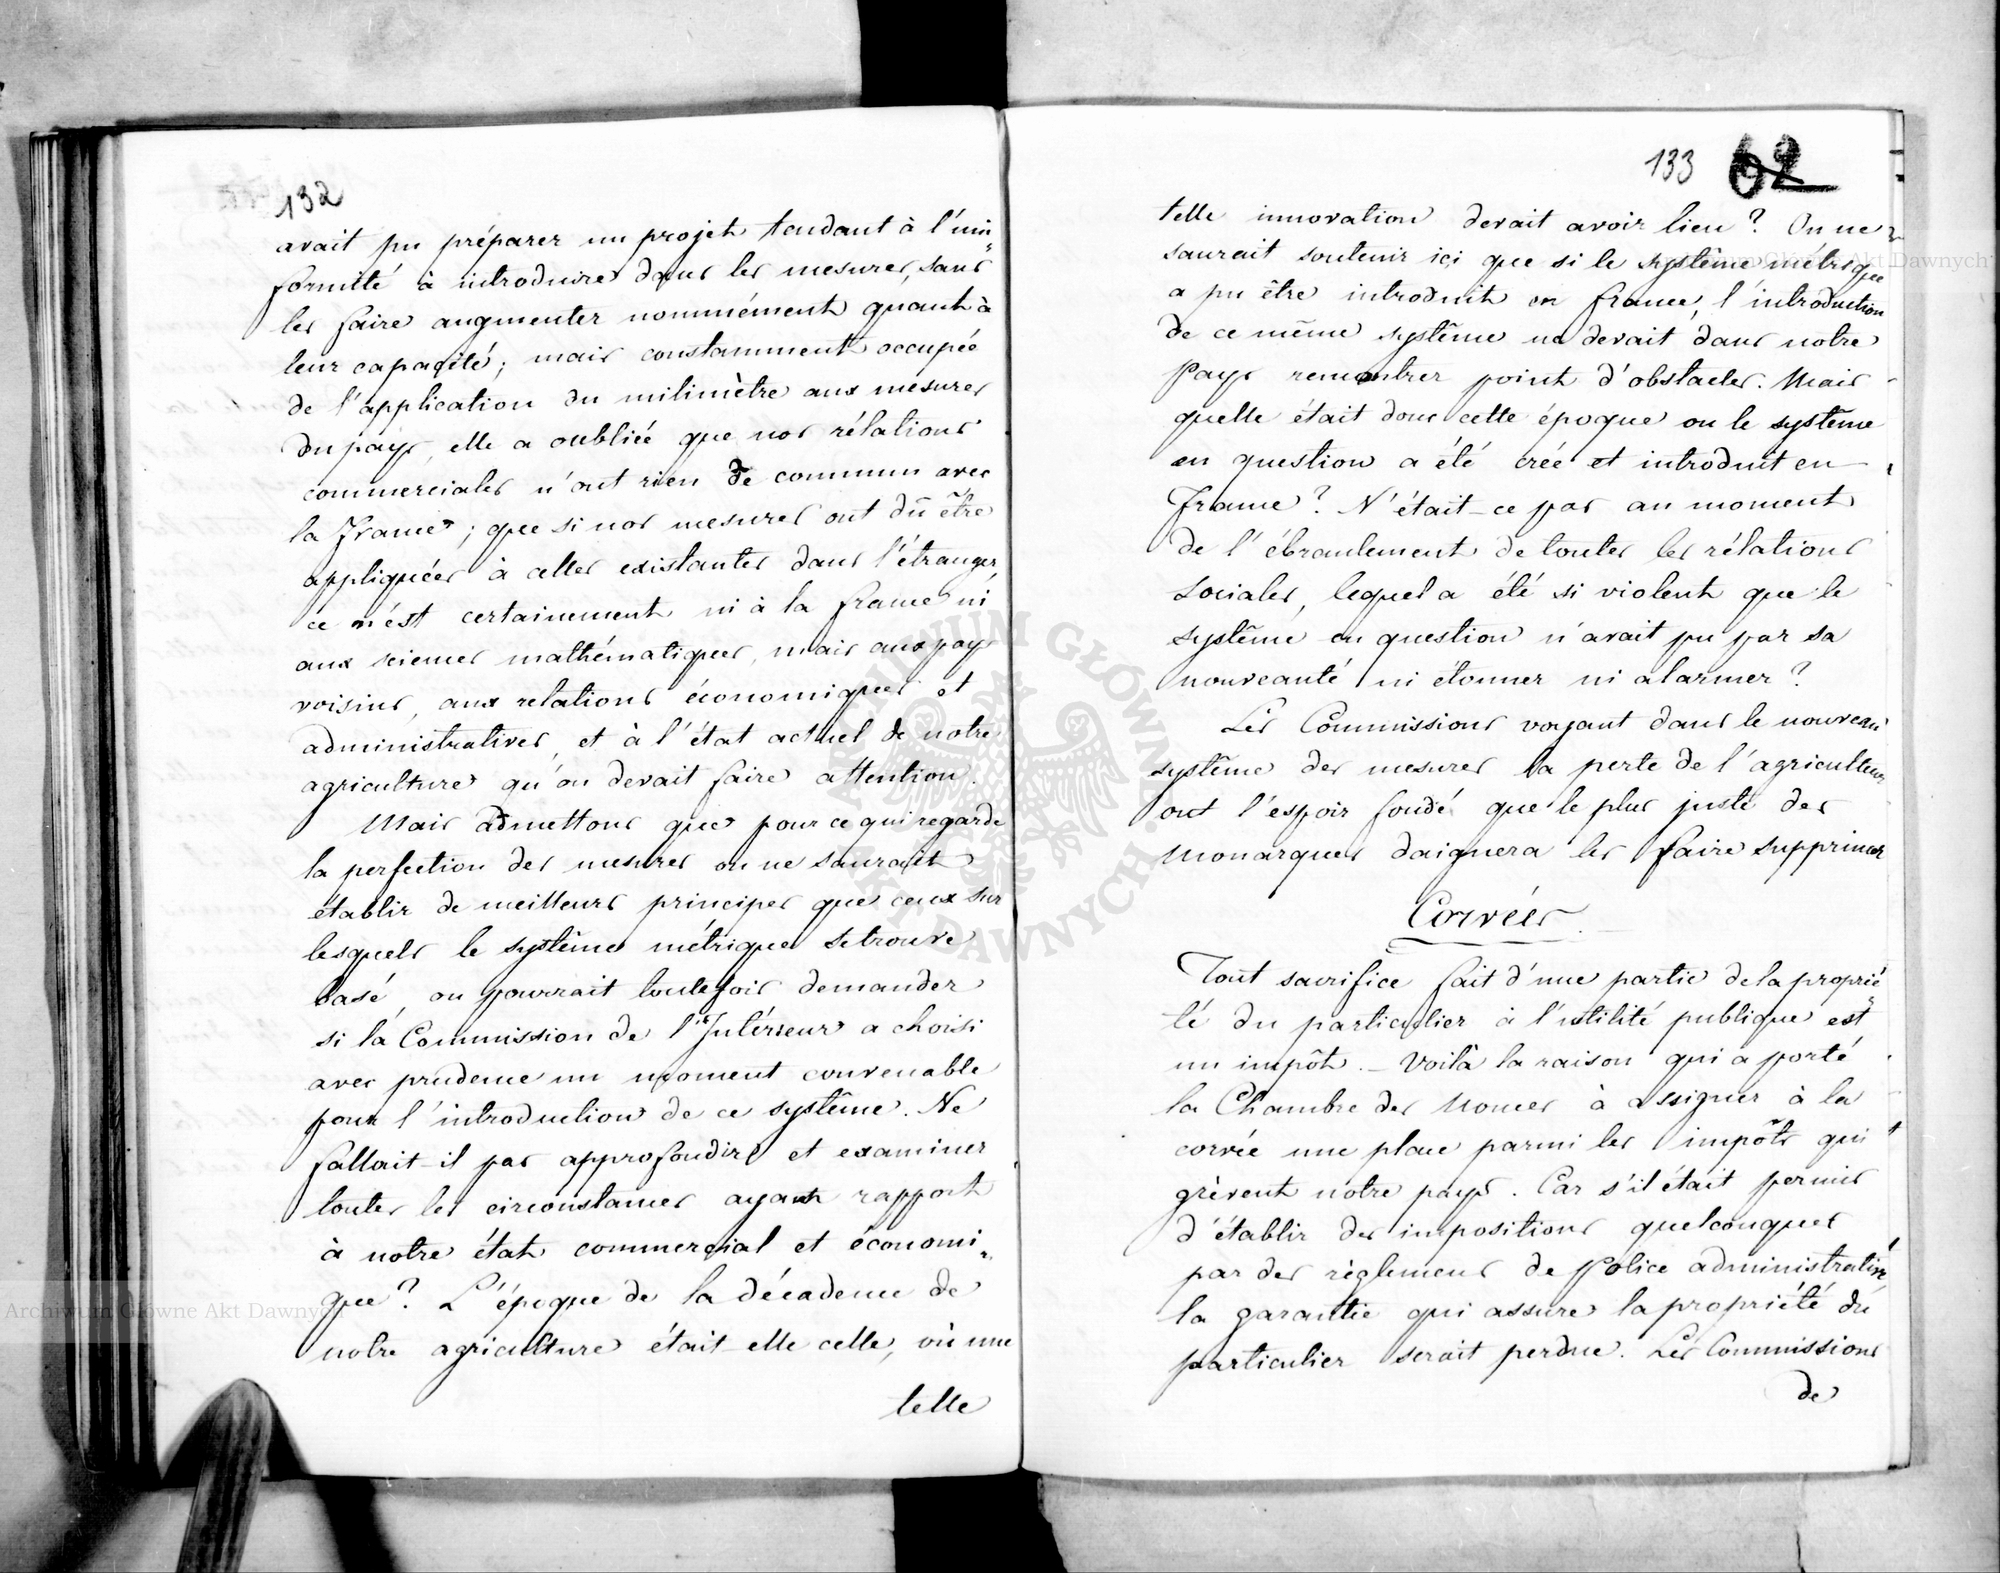 132
avait pu préparer un projet tendant à l'uni=
formité à introduire dans les mesures, sans
les faire augmenter nommément quant à
leur capacité; mais constamment occupée
de l'application du milimètre aux mesures
du pays, elle a oubliée que nos rélations
commerciales n'ont rien de commun avec
la France; que si nos mesures ont dû être
appliquées à celles existantes dans l'étranger,
ce n'est certainement ni à la france ni
aux sciences mathématiques, mais aux pays
voisins, aux relations économiques et
administratives, et à l'état actuel de notre
agriculture qu'on devait faire attention.
Mais admettons que pour ce qui regarde
la perfection des mesures on ne saurait
établir de meilleurs principes que ceux sur
lesquels le systême métrique se trouve
basé, on pourrait toutefois demander
si la Commission de l'Intérieur a choisi
avec prudence un moment convenable
pour l'introduction de ce systême. Ne
fallait-il pas approfondir et examiner
toutes les circonstances ayant rapport
à notre état commercial et économi=
que? L'époque de la décadence de
notre agriculture était-elle celle, où une
telle
133 62
telle innovation devait avoir lieu? On ne
saurait soutenir ici que si le systême métrique
a pu être introduit en france, l'introduction
de ce même systême ne devait dans notre
pays rencontrer point d'obstacles. Mais
quelle était donc cette époque ou le systême
en question a été créé et introduit en
France? N'était-ce pas au moment
de l'ébranlement de toutes les rélations
sociales, lequel a été si violent que le
systême en question n'avait pu par sa
nouveauté ni étonner ni alarmer?
Les Commissions voyant dans le nouveau
systême des mesures la perte de l'agriculteur
ont l'espoir fondé que le plus juste des
Monarques daignera les faire supprimer
Corvées.
Tout sacrifice fait d'une partie de la proprié=
té du particulier à l'utilité publique est
un impôt. – Voilà la raison qui a porté
la Chambre des Nonces à assigner à la
corvée une place parmi les impôts qui
grèvent notre pays. Car s'il était permis
d'établir des impositions quelconques
par des règlemens de Police administrative,
la garantie qui assure la propriété du
particulier serait perdue. Les Commissions
de
Archiwum Główne Akt Dawnych
Archiwum Główne Akt Dawnych
ARCHIWUM GŁÓWNE AKT DAWNYCH